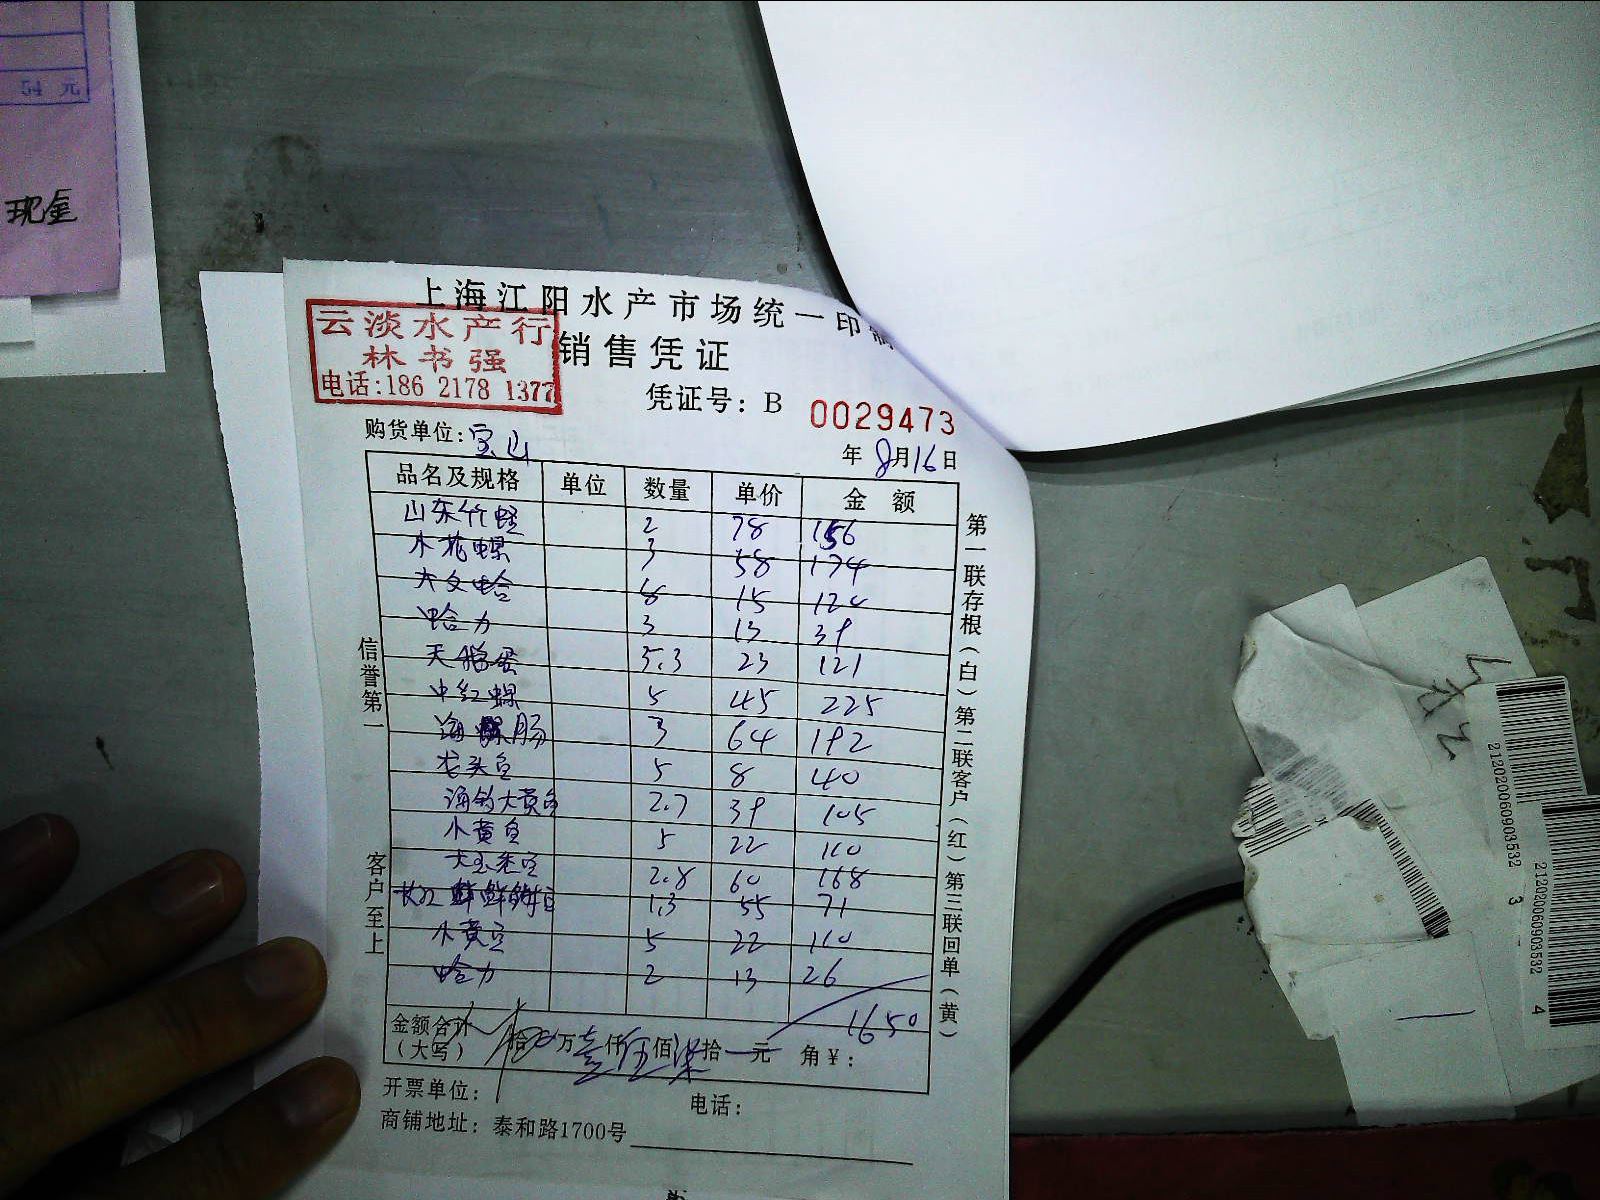 54 元
现金
上海江阳水产市场统一印制
云淡水产行
林书强
电话:186 2178 1377
销售凭证
凭证号: B 0029473
购货单位: 宝山
年 8月16日
品名及规格 单位 数量 单价 金 额
山东竹蛏 2 78 156
木花螺 3 58 174
大文蛤 8 15 120
蛤力 3 13 39
天鹅蛋 5.3 23 121
中红螺 5 45 225
海 肠 3 64 192
龙头鱼 5 8 40
海钓大黄鱼 2.7 39 105
小黄鱼 5 22 110
大 鱼 2.8 60 168
长江 鲜 1.3 55 71
小黄鱼 5 22 110
蛤力 2 13 26
1650
金额合计
(大写) 拾 万 壹仟 伍佰 拾一元 角¥:
开票单位: 电话:
商铺地址: 泰和路1700号
信誉第一 客户至上
第一联存根(白) 第二联客户(红) 第三联回单(黄)
2120200609035323
2120200609035324